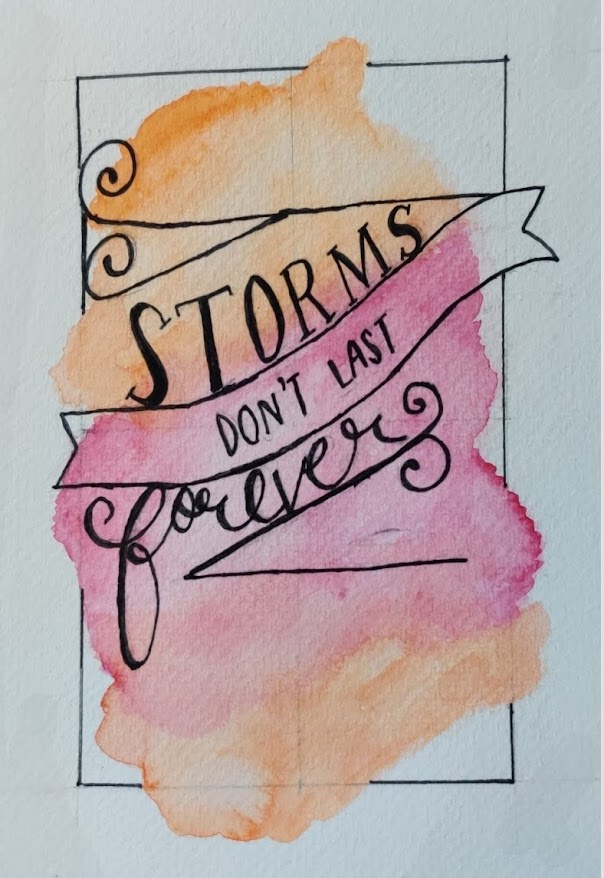 STORMS
DON'T LAST
forever